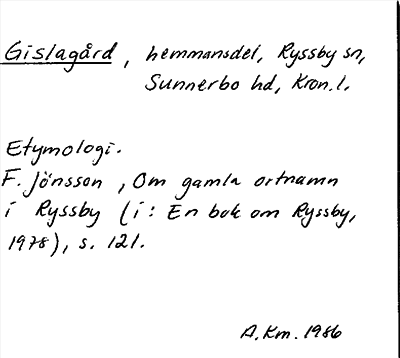 Gislagård, hemmansdel, Ryssby sn,
Sunnerbo hd, Kron.l.
Etymologi.
F. Jönsson, Om gamla ortnamn
i Ryssby (i: En bok om Ryssby,
1978), s. 121.
A.Km. 1986